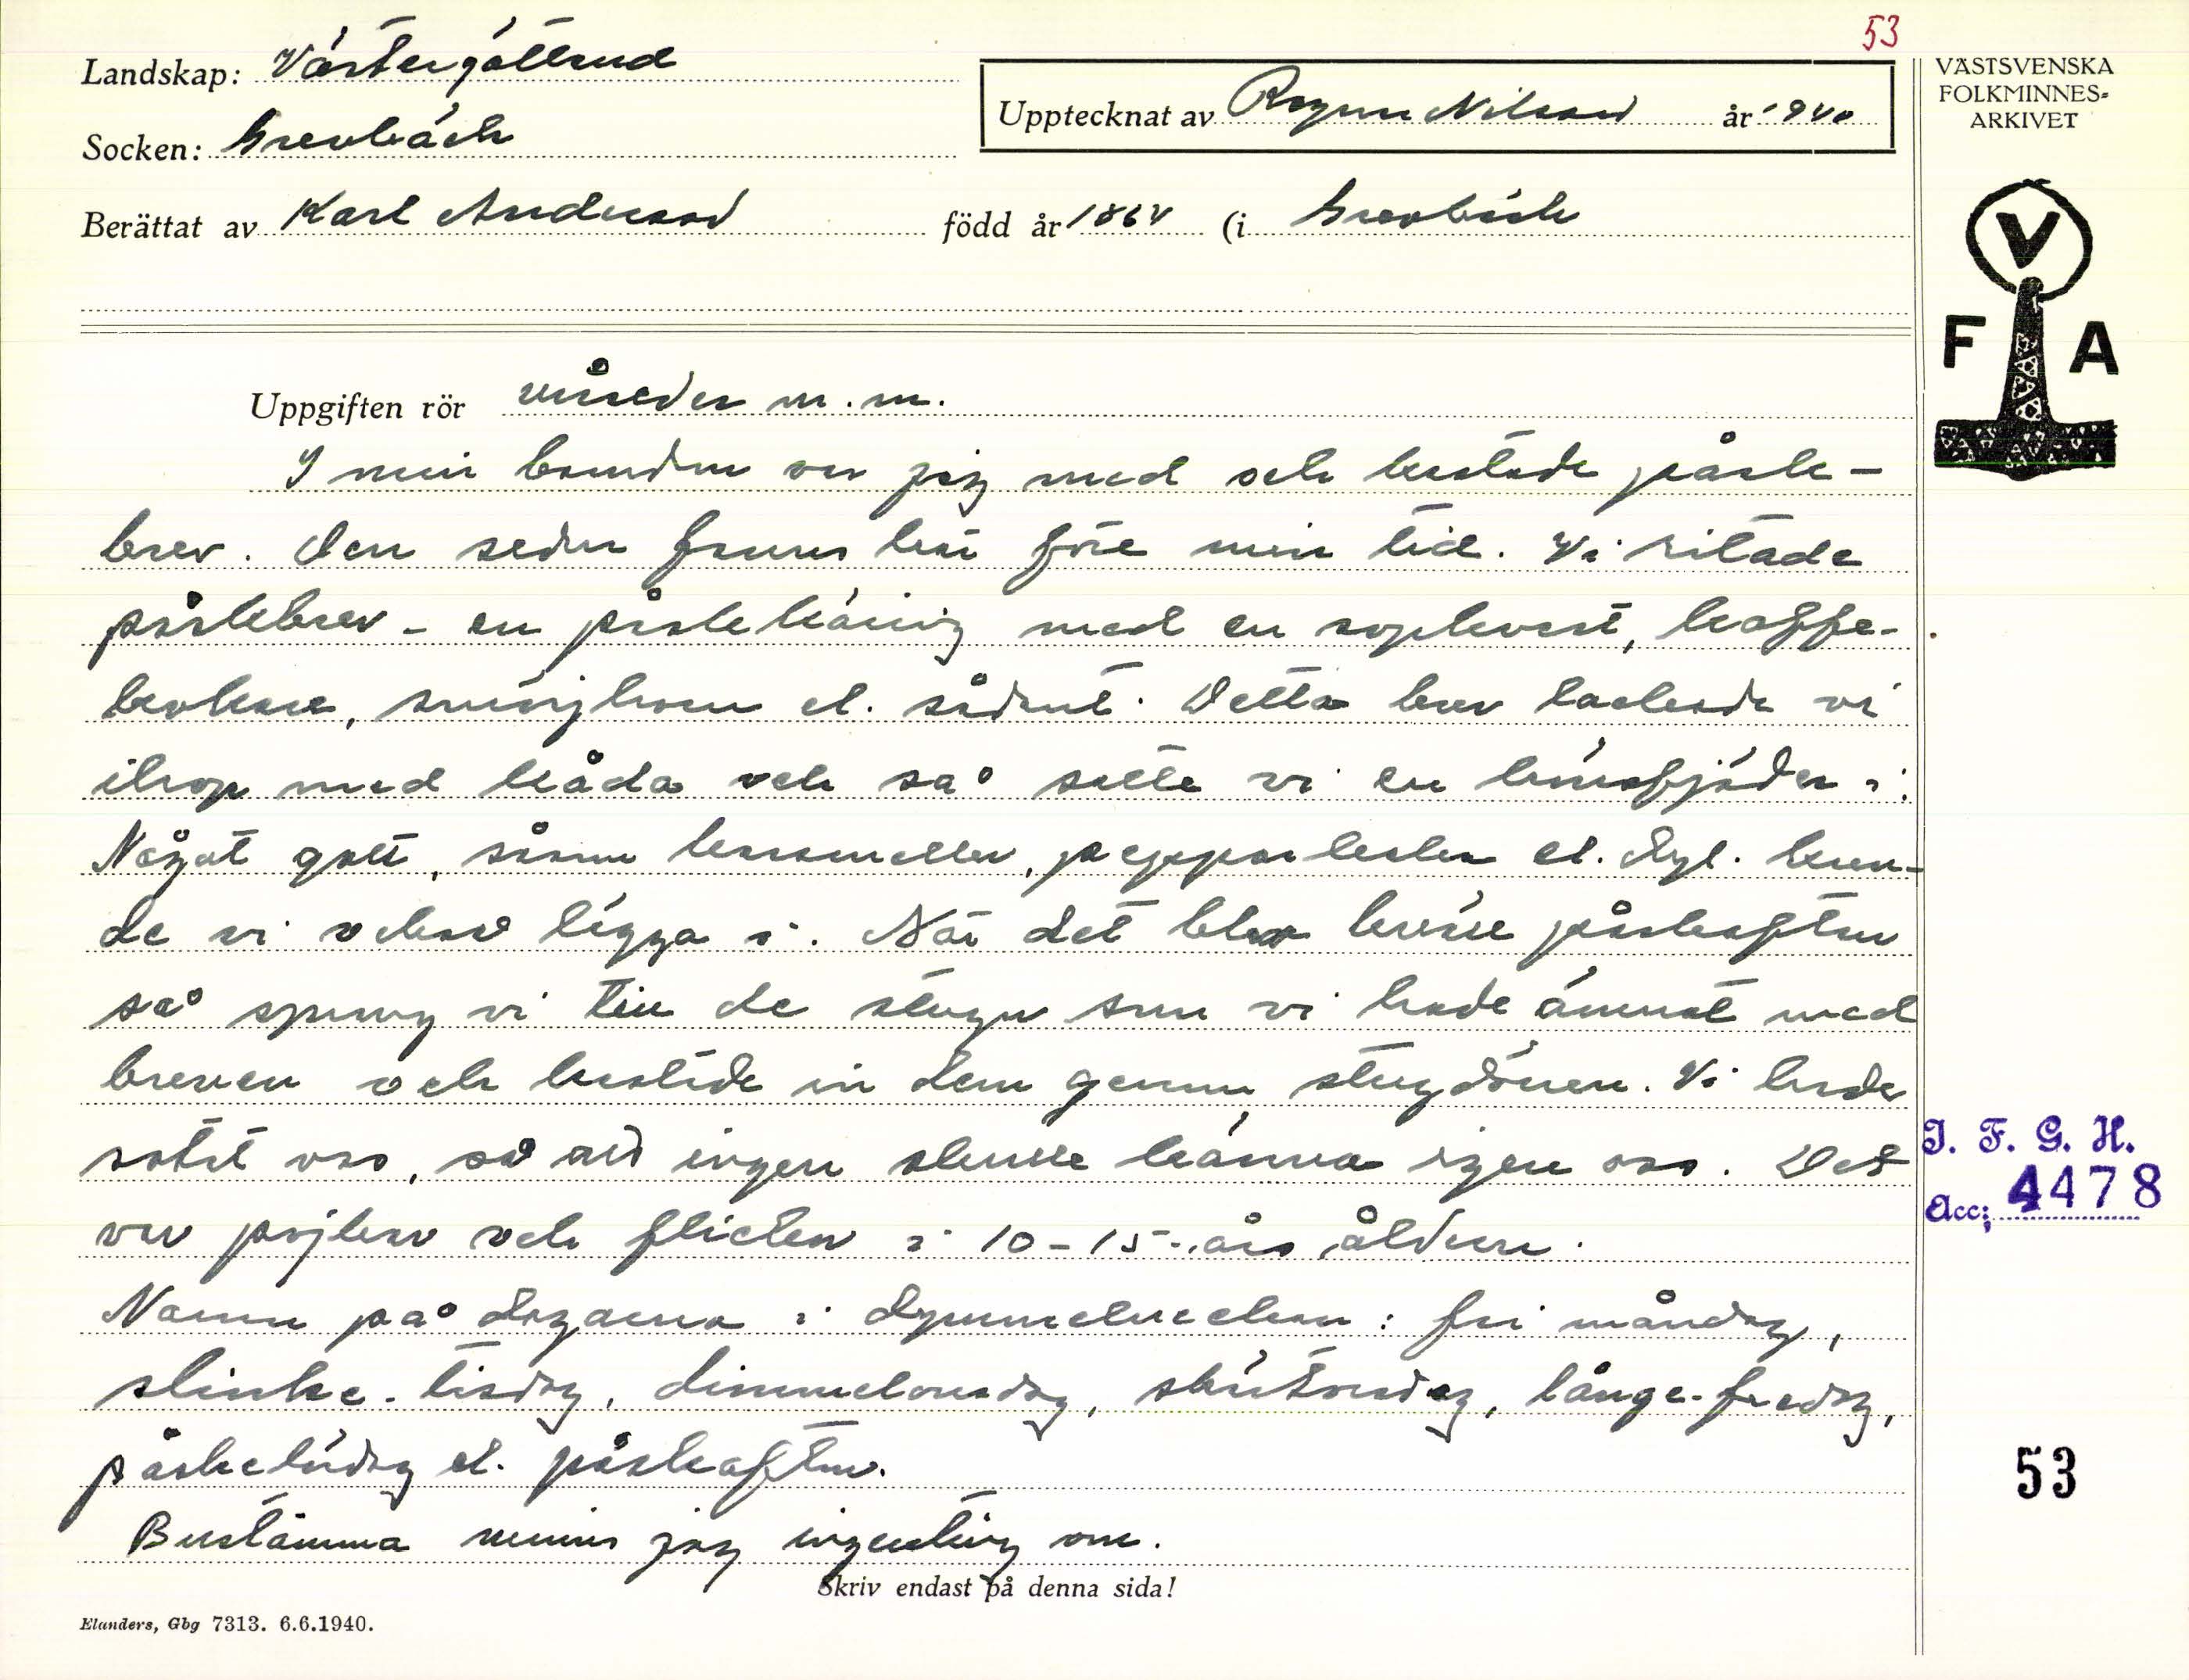 53
Landskap: Västergötland
Socken: Grevbäck
Upptecknat av Ragnar Nilsson år 1940
Berättat av Karl Andersson född år 1864 (i Grevbäck
VÄSTSVENSKA
FOLKMINNES-
ARKIVET
V
F A
Uppgiften rör vårseder m.m.
I min barndom var jag med och kastade påsk-
brev. Den seden fanns här före min tid. Vi ritade
påskbrev - en påskkäring med en sopkvast, kaffe-
kokare, smörjhorn el. sådant. Detta brev lackade vi
ihop med kåda och så satte vi en hönsfjäder i.
Något gott, såsom karameller, pepparkakor el. dyl. kun-
de vi också lägga i. När det blev kväll påskafton
så sprang vi till de stugor som vi hade ämnat med
breven och kastade in dem genom stugdörren. Vi hade
sotat oss, så att ingen skulle känna igen oss. Det
var pojkar och flickor i 10-15-års åldern.
Namn på dagarna i dymmelveckan: fri måndag,
slinke-tisdag, dimmelonsdag, skärtorsdag, långe-fredag,
påskelördag el. påskafton.
Bustämma minns jag ingenting om.
Skriv endast på denna sida!
Elanders, Gbg 7313. 6.6.1940.
I. F. G. H.
Acc: 4478
53